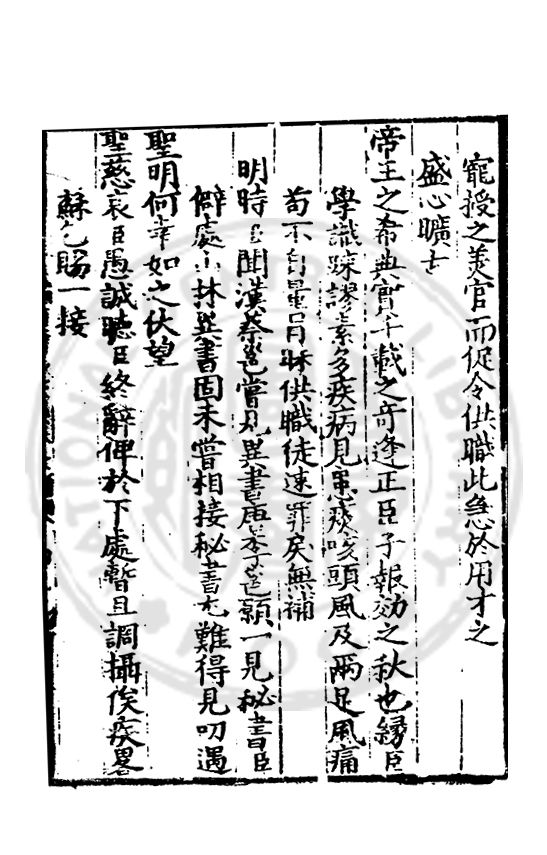 寵授之美官而促令供職此急於用才之
盛心曠古
帝王之希典實千載之奇逢正臣子報效之秋也緣臣
學識疎謬素多疾病見患痰咳頭風及兩足風痛
苟不自量冒昧供職徒速罪戾無補
明時臣聞漢蔡邕嘗見異書唐李邕願一見秘書臣
僻處山林異書固未嘗相接秘書尤難得見叨遇
聖明何幸如之伏望
聖慈哀臣愚誠聽臣終辭俾於下處暫且調攝俟疾畧
蘇乞賜一接